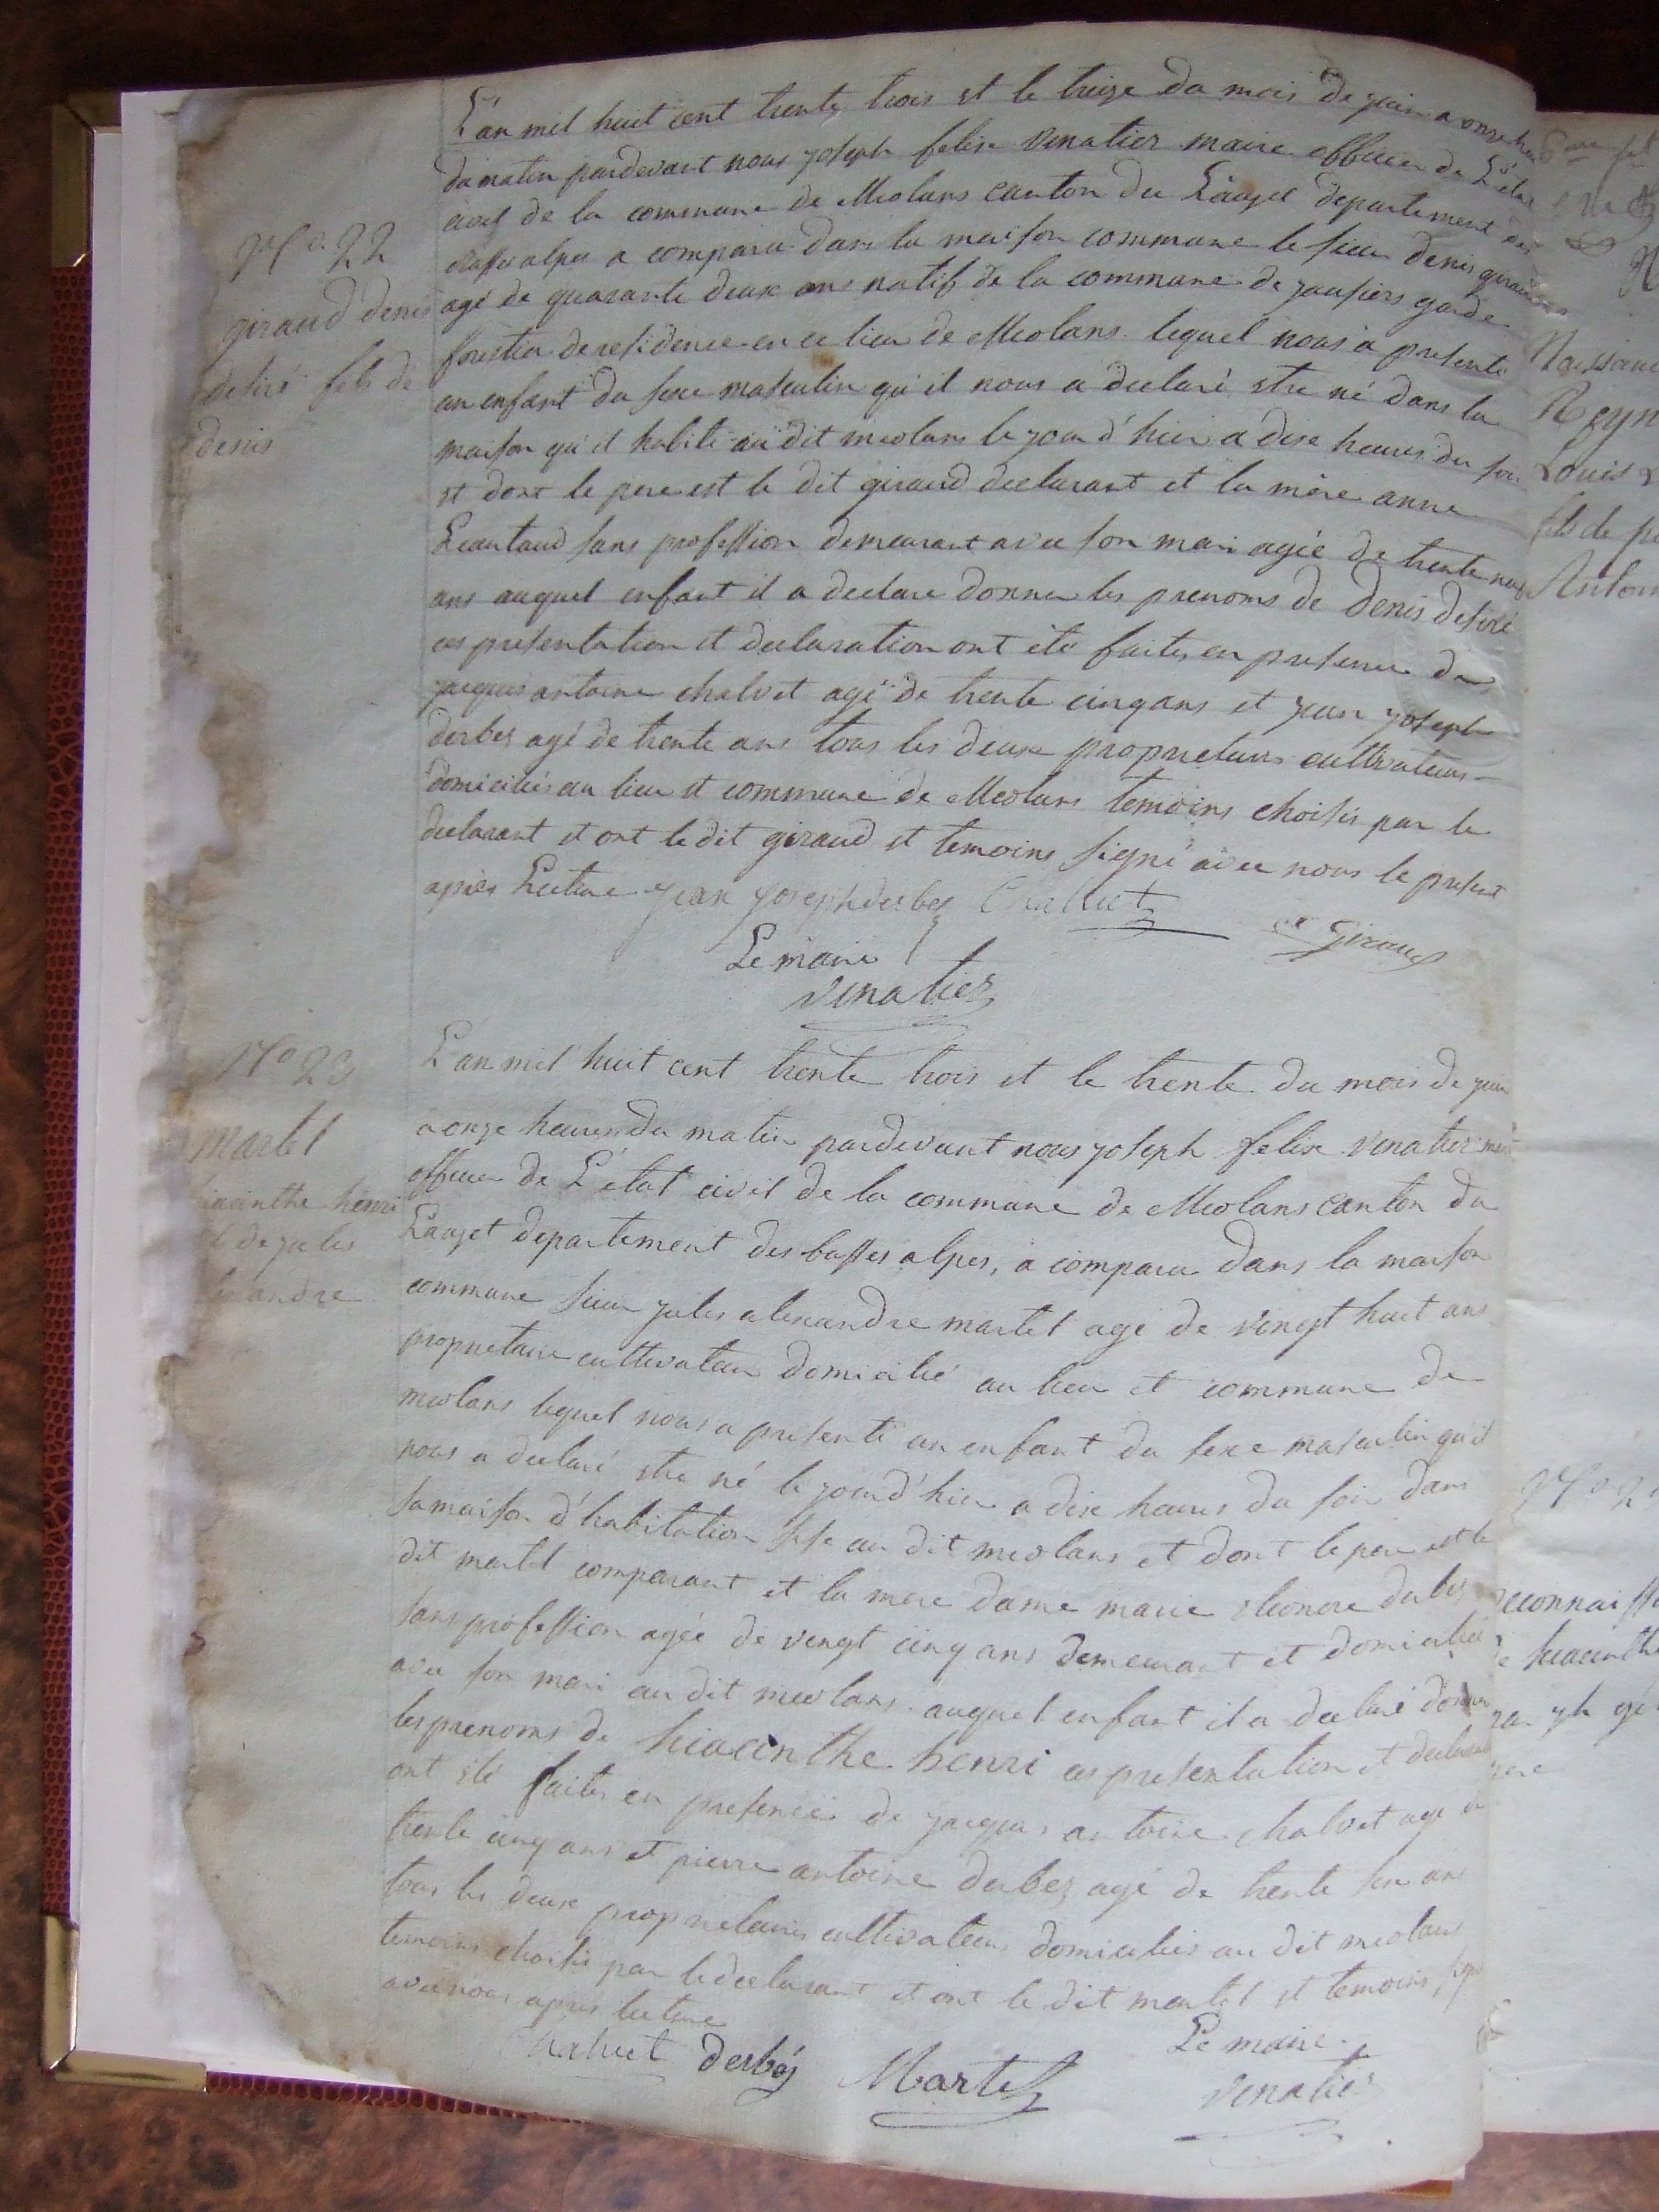 L'an mil huit cent trente trois et le treize du mois de juin a onze heu
du matin pardevant nous joseph felix vinatier maire officier de L'état
civil de la commune de Meolans canton du Lauzet departement des
basses alpes a comparu dans la maison commune le sieur denis giraud
agé de quarante deux ans natif de la commune de jausiers garde
forestier de residence en ce lieu de Meolans lequel nous à presenté
un enfant du sexe masculin qu'il nous a declaré etre né dans la
maison qu'il habite au dit meolans le jour d'hier a dix heures du soir
et dont le pere est le dit giraud declarant et la mère anne
Leautaud sans profession demeurant avec son mari agée de trente neuf
ans auquel enfant il a declare donner les prenoms de Denis desiré
ces presentation et declaration ont été faites en presence de
jacques antoine chalvet agé de trente cinq ans et jean joseph
derbez agé de trente ans tous les deux proprietaires cultivateurs
domiciliés au lieu et commune de Meolans temoins choisis par le
declarant et ont le dit giraud et temoins signé avec nous le present
après Lecture jean joseph derbez Chalvet
Giraud
Le maire
vinatier
N° 22
giraud denis
desiré fils de
denis
L'an mil huit cent trente trois et le trente du mois de juin
a onze heures du matin pardevant nous joseph felix vinatier maire
officier de L'état civil de la commune de Meolans canton du
Lauzet departement des basses alpes, a comparu dans la maison
commune sieur jules alexandre martel agé de vingt huit ans
proprietaire cultivateur domicilié au lieu et commune de
meolans lequel nous a presenté un enfant du sexe masculin qu'il
nous a declaré etre né le jour d'hier a dix heures du soir dans
sa maison d'habitation sise au dit meolans et dont le pere est le
dit martel comparant et la mere dame marie eleonore derbez
sans profession agée de vingt cinq ans demeurant et domiciliée
avec son mari au dit meolans auquel enfant il a declaré donner
les prenoms de hiacinthe henri ces presentation et declaration
ont été faites en presence de jacques antoine chalvet agé de
trente cinq ans et pierre antoine derbez agé de trente six ans
tous les deux proprietaires cultivateurs domiciliés au dit meolans
temoins choisis par le declarant et ont le dit martel et temoins signé
avec nous apres lecture
Chalvet derbéz Martel
Le maire
vinatier
N° 23
martel
hiacinthe henri
de jules
N
Naissance
Reyn
Louis
fils de
Antoin
N° 2
reconnaiss
hiacinth